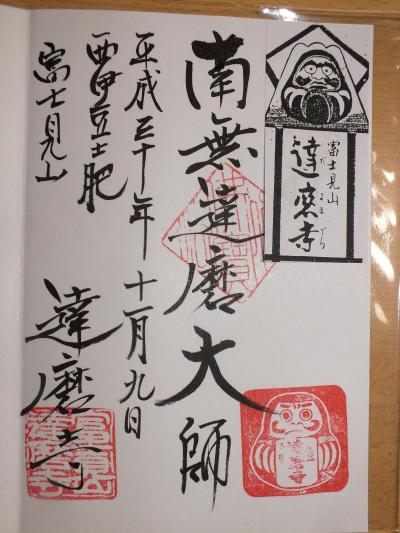 富士見山
達磨寺
だるまでら
南無達磨大師
平成三十年十一月九日
西伊豆土肥
富士見山
達磨寺
達磨寺